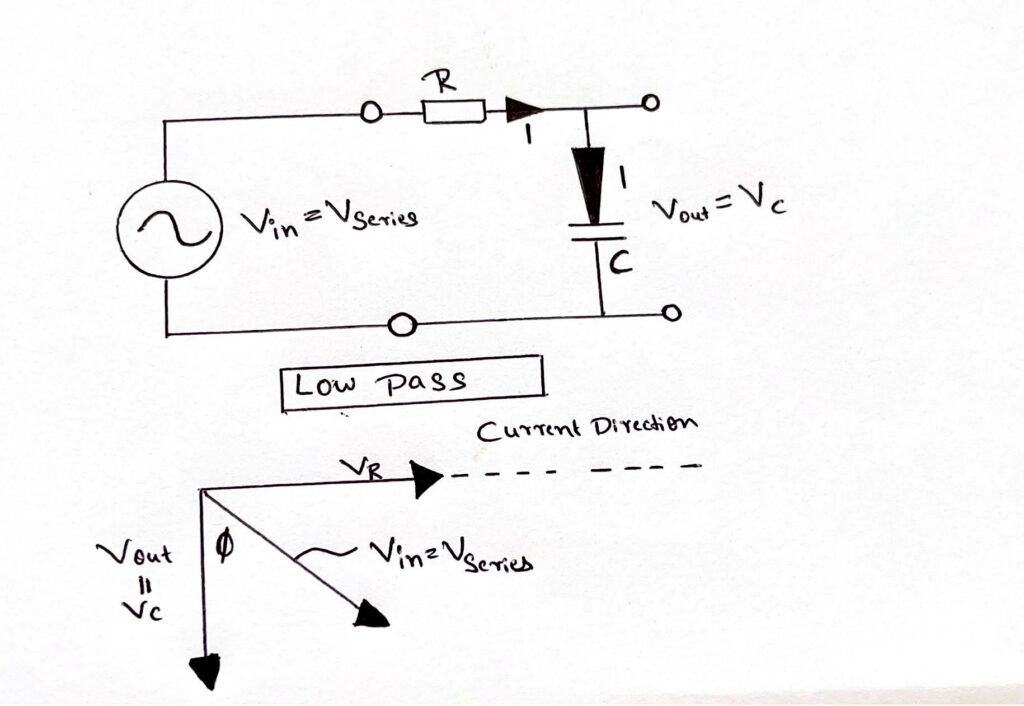 R
I
Vin = VSeries
I
Vout = Vc
C
Low pass
Current Direction
VR
Vout
=
Vc
φ
Vin = VSeries